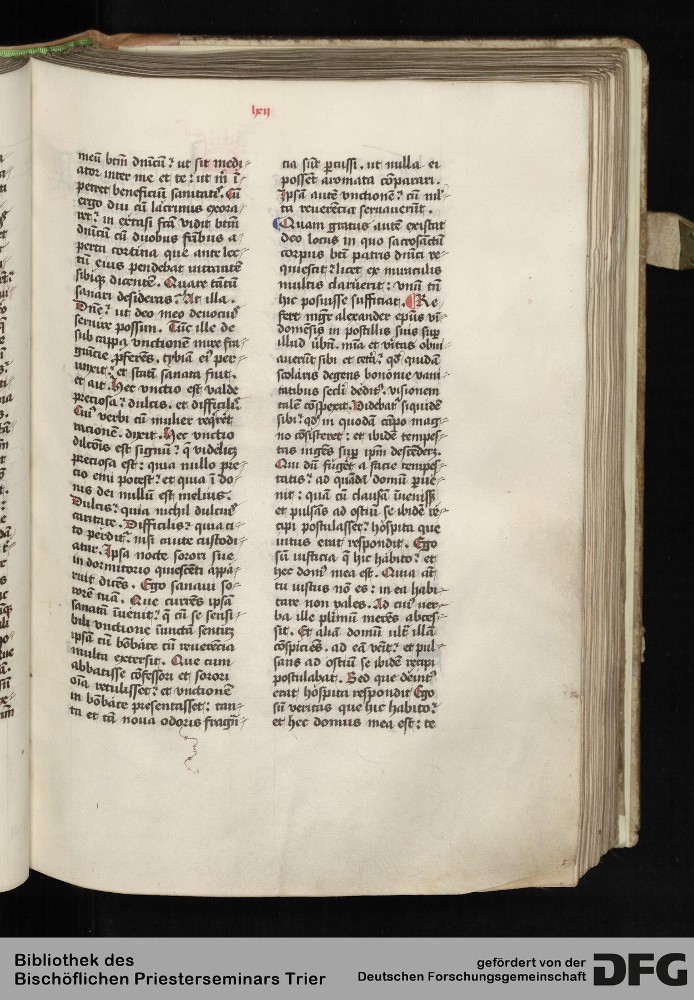 lxii
meū btm̄ dnicū? ut sit medi
ator inter me et te: ut m̄ ī
petret beneficiū sanitatis. Cū
ergo diu cū lacrimis exora
ret: in extasi fc̄a vidit btm̄
dnicū cū duobus fr̄ibus a
perta cortina que ante lec
tū eius pendebat intrantē
sibiqꝫ dicentē. Quare tātū
sanari desideras? At illa.
Dn̄e? ut deo meo devotius
servire possim. Tūc ille de
sub cappa unctionem mire fra
grācie ꝓferēs. tybiā eiꝰ per
unxit? et statī sanata fuit.
et ait. Hec unctio est valde
preciosa? dulcis. et difficilis.
Cuiꝰ verbi cū mulier reqreret
rationē. dixit. Hec unctio
dilcōis est signū? q̄ videlicꝫ
preciosa est: quia nullo pre
cio emi potest? et quia ī do
nis dei nullū est melius.
Dulcis? quia nichil dulciꝰ
caritate. Difficilis? quia ci
to perdit̄. nisi caute custodi
atur. Ipsa nocte sorori sue
in dormitorio quiescēti appa
ruit dicēs. Ego sanavi so
rorē tuā. Que currēs ipsā
sanatā īuenit? q̄ cū se sensi
bili unctione īunctā sentiꝫ
ipsā cū bōbace cū reverētia
multa extersit. Que cum
abbatisse cōfessori et sorori
oīa retulisset? et unctionem
in bōbace presentasset: tan
ta et tā nova odoris fragrā
cia sūt ꝑcussi. ut nulla ei
possēt aromata cōparari.
Ipsā autē unctionē? cū ml
ta reverētia servaverūt.
Quam gratus autē existat
deo locus in quo sacrosāctū
corpus bti patris dnici re
quiescit? licet ex miraculis
multis claruerit: unū tn̄
hic posuisse sufficiat. Re
fert mgr̄ alexander ep̄us vī
domēsis in postillis suis sup
illud v̄bū. mīa et vitas obvi
averūt sibi et cet̄a? qd̄ quidā
scolaris degens bononie vani
tatibus secli deditꝰ. visionem
talē cōspexit. Videbat̄ siquidē
sibi? qd̄ in quodā cāpo mag
no cōsisteret: et ibidē tempes
tas ingēs sup ip̄m descēderꝫ.
Qui dū fugꝫet a facie tempes
tatis? ad quādā domū pve
nit: quā cū clausā īveniss̄
et pulsās ad ostiū se ibidē re
cipi postulasset? hospita que
intus erat respondit. Ego
sū iusticia q̄ hic habito? et
hec domꝰ mea est. Quia at̄
tu iustus nō es: in ea habi
tare non vales. Ad cuiꝰ ver
ba ille plīmū merēs absces
sit. Et aliā domū ult̄ illā
cōspiciēs. ad eā veīt? et pul
sans ad ostiū se ibidē recipi
postulabat. Sed que deintꝰ
erat hospita respondit Ego
sū veritas que hic habito?
et hec domus mea est: te
Bibliothek des
Bischöflichen Priesterseminars Trier
gefördert von der
Deutschen Forschungsgemeinschaft
DFG